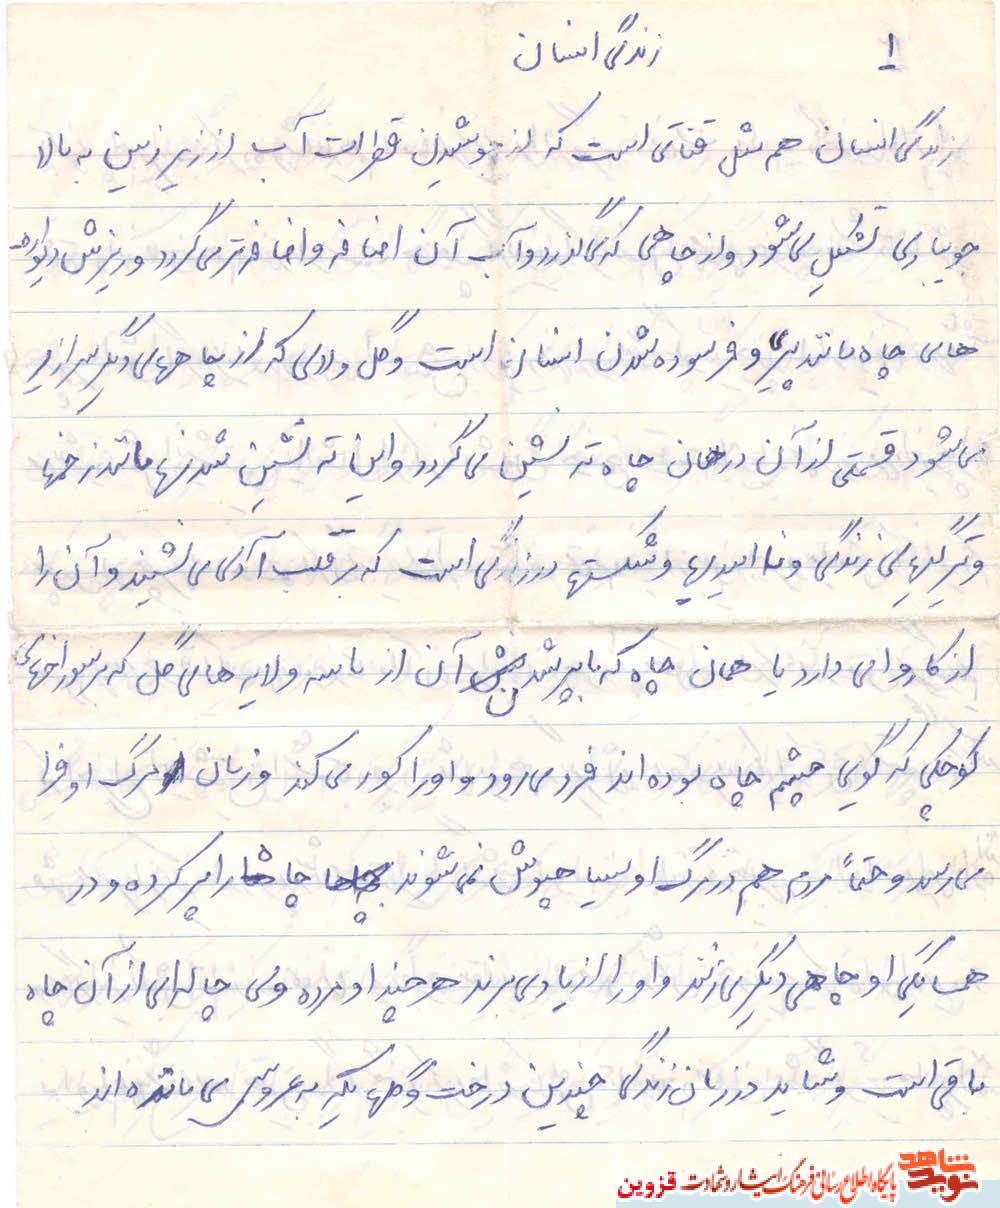 ۱
زندگی انسان
زندگی انسان هم مثل قناتی است که از جوشیدن قطرات آب از زیر زمین به بالا
جویباری تشکیل می‌شود و از چاهی که می‌گذرد و آب آن اضافه و اضافه‌تر می‌گردد و ریزش دیواره
های چاه مانند پیری و فرسوده شدن انسان است و گل و لای که از چاههای دیگر سرازیر
می‌شود قسمتی از آن در همان چاه ته نشین می گردد و این ته نشین شدنها مانند زخمها
و تیرگیهای زندگی و نا امیدیها و شکستها در زندگی است که بر قلب آدمی می نشیند و آن را
از کار وا می دارد یا همان چاه که با پر شدنش آن از ماسه و لایه های گل که بر سوراخهای
کوچکی که گویی چشم چاه بوده اند فرو می رود و او را کور می کند و زمان مرگ او فرا
می رسد و حتماً مردم هم در مرگ او سیاهپوش نمی شوند چاه را پر کرده و در
همسایگی او چاهی دیگر می زنند و او را از یاد می برند هر چند او مرده ولی چاله ای از آن چاه
باقی است و شاید در زمان زندگی چندین درخت و گلها یکه به عروسی می مانده اند
نوید شاهد
پایگاه اطلاع رسانی فرهنگ ایثار و شهادت قزوین